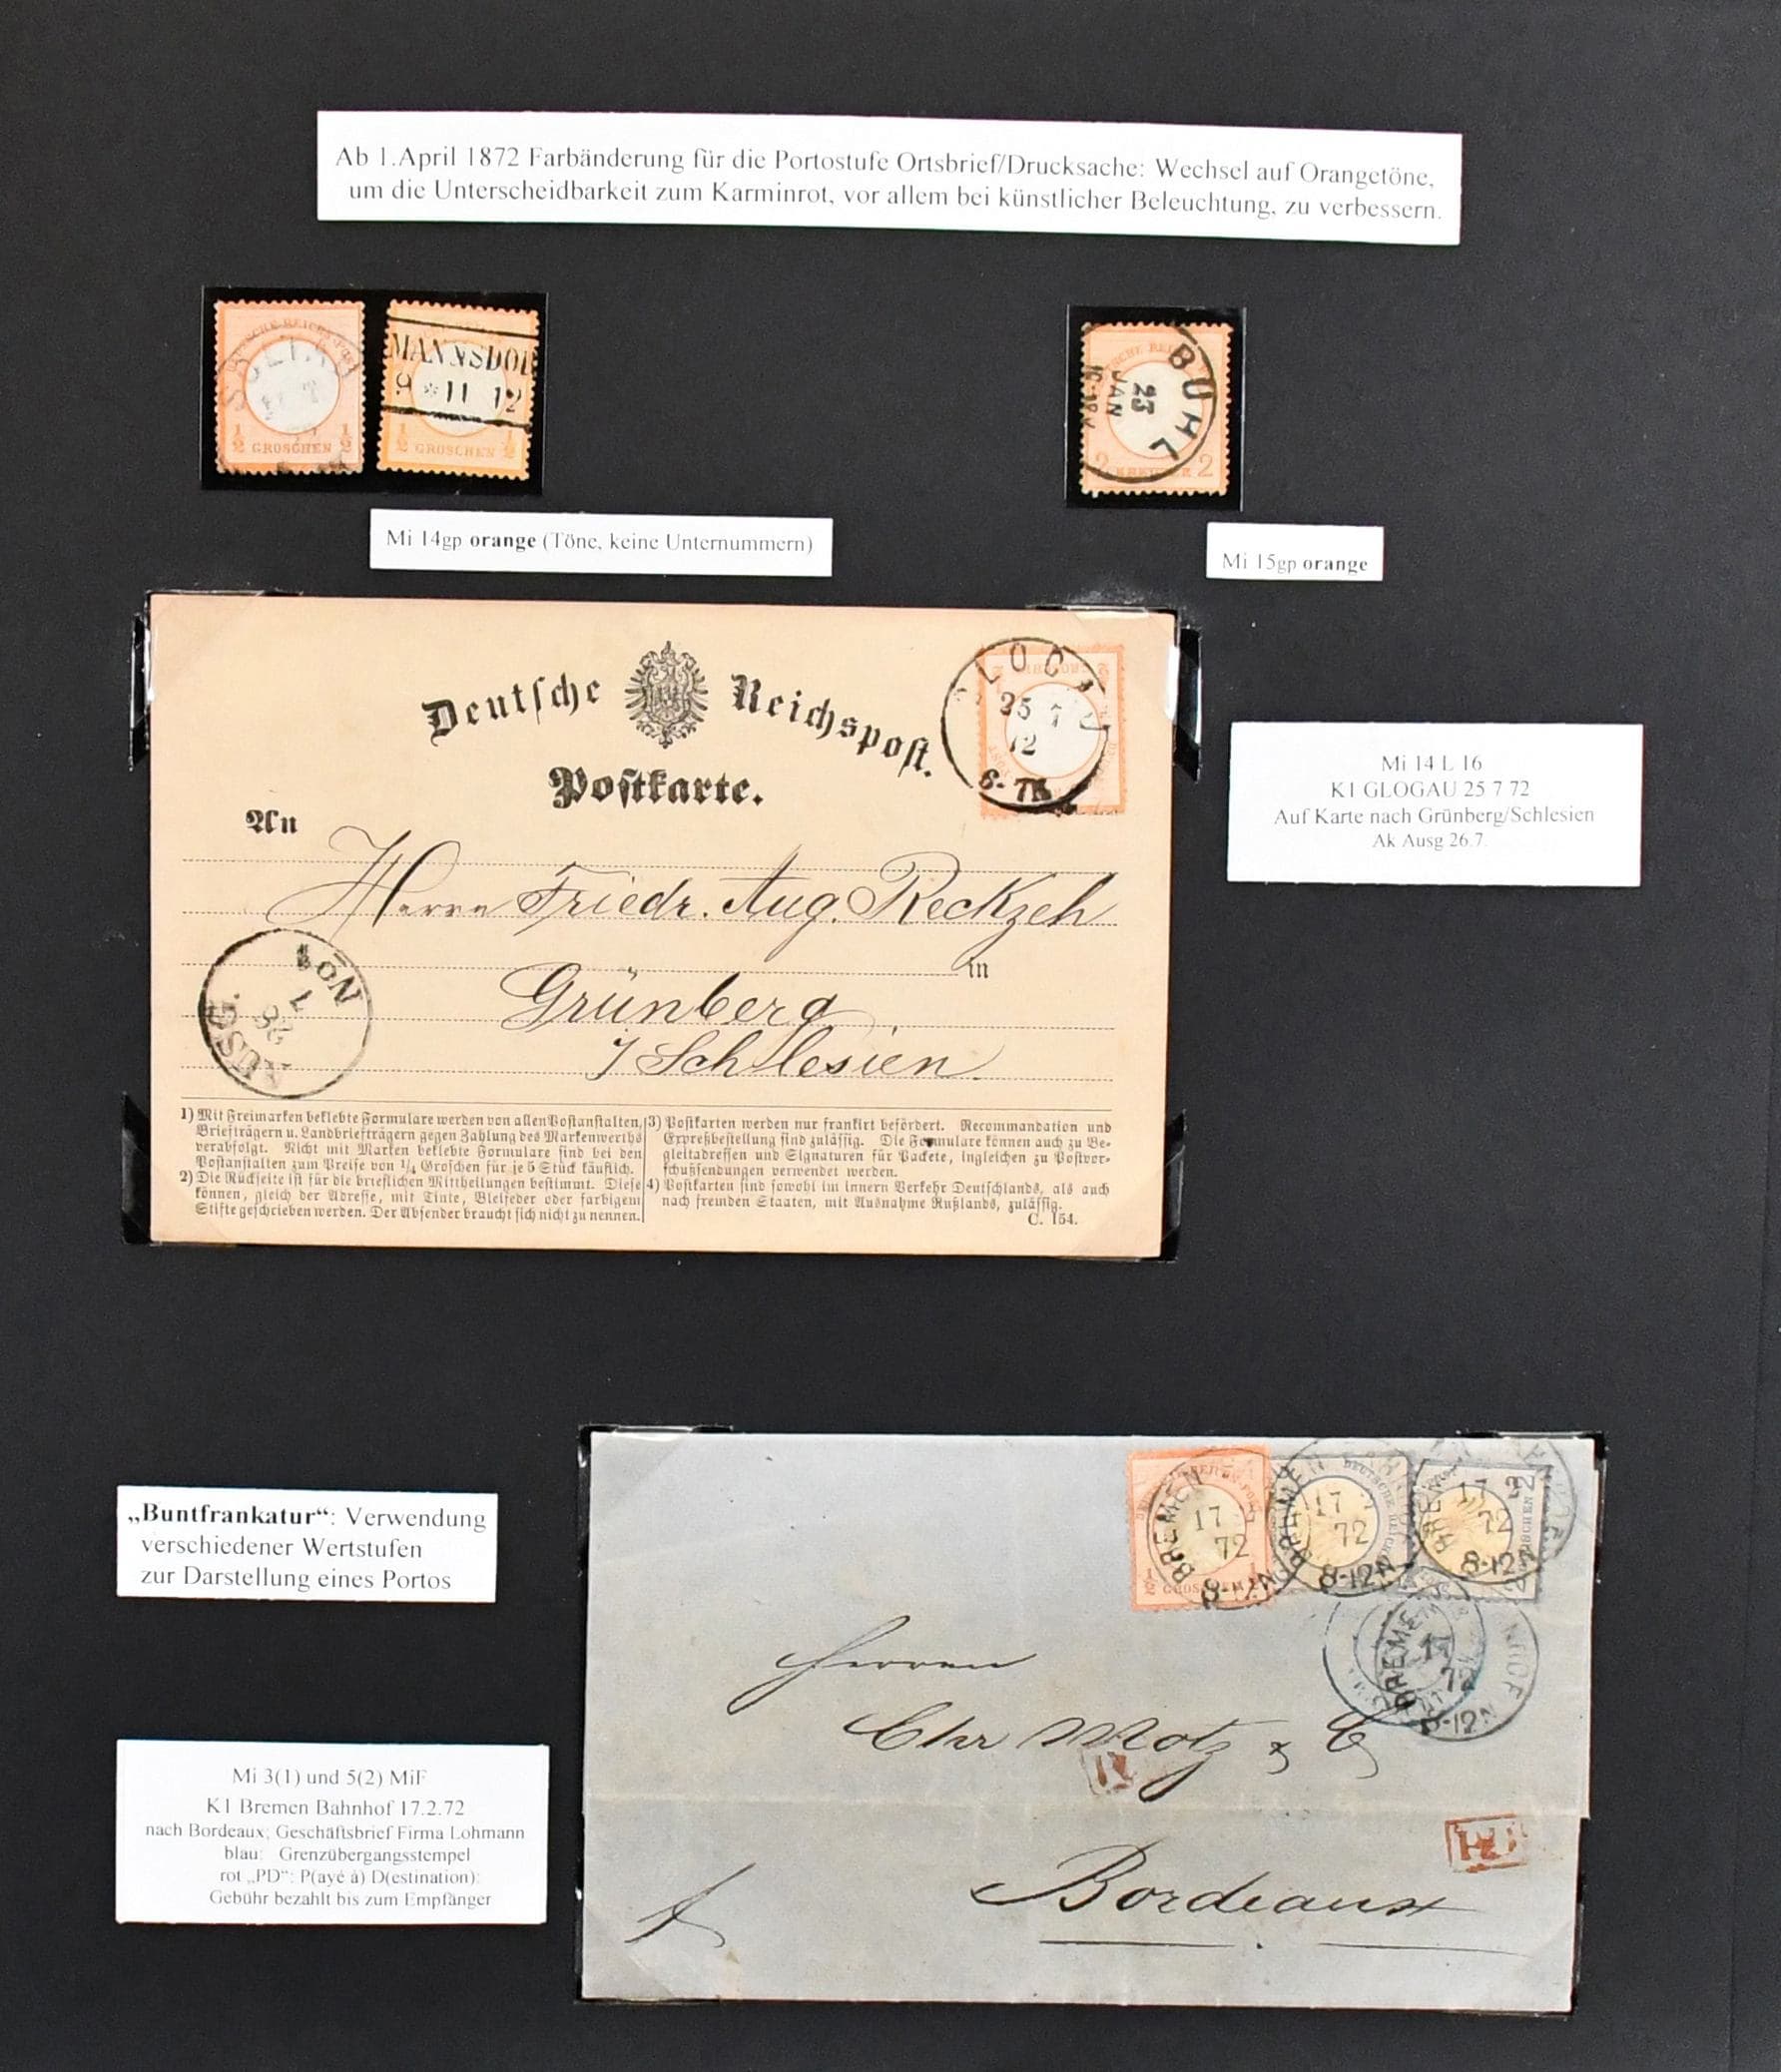 Ab 1.April 1872 Farbänderung für die Portostufe Ortsbrief/Drucksache: Wechsel auf Orangetöne,
um die Unterscheidbarkeit zum Karminrot, vor allem bei künstlicher Beleuchtung, zu verbessern.
½ GROSCHEN ½
MANNSDOR
9 * 11 12
½ GROSCHEN ½
BÜHL
23
JAN
2 2
Mi 14gp orange (Töne, keine Unternummern)
Mi 15gp orange
Deutsche Reichspost.
Postkarte.
GLOGAU
25 7
72
6-7N
An
Herrn Friedr. Aug. Reckzeh
in
Grünberg
i/Schlesien.
AUSG.
26
7
No 1
1) Mit Freimarken beklebte Formulare werden von allen Postanstalten,
Briefträgern u. Landbriefträgern gegen Zahlung des Markenwerths
verabfolgt. Nicht mit Marken beklebte Formulare sind bei den
Postanstalten zum Preise von 1/4 Groschen für je 5 Stück käuflich.
2) Die Rückseite ist für die brieflichen Mittheilungen bestimmt. Diese
können, gleich der Adresse, mit Tinte, Bleifeder oder farbigem
Stifte geschrieben werden. Der Absender braucht sich nicht zu nennen.
3) Postkarten werden nur frankirt befördert. Recommandation und
Expreßbestellung sind zulässig. Die Formulare können auch zu Be-
gleitadressen und Signaturen für Packete, ingleichen zu Postvor-
schußsendungen verwendet werden.
4) Postkarten sind sowohl im innern Verkehr Deutschlands, als auch
nach fremden Staaten, mit Ausnahme Rußlands, zulässig.
C. 154.
Mi 14 L 16
K1 GLOGAU 25 7 72
Auf Karte nach Grünberg/Schlesien
Ak Ausg 26.7.
„Buntfrankatur“: Verwendung
verschiedener Wertstufen
zur Darstellung eines Portos
Mi 3(1) und 5(2) MiF
K1 Bremen Bahnhof 17.2.72
nach Bordeaux; Geschäftsbrief Firma Lohmann
blau: Grenzübergangsstempel
rot „PD“: P(ayé à) D(estination):
Gebühr bezahlt bis zum Empfänger
BREMEN
17
72
8-12N
BREMEN
17
72
8-12N
BREMEN
17 2
72
8-12N
BREMEN
17
72
8-12N
Herren
Chr Motz & C
PD
Bordeaux